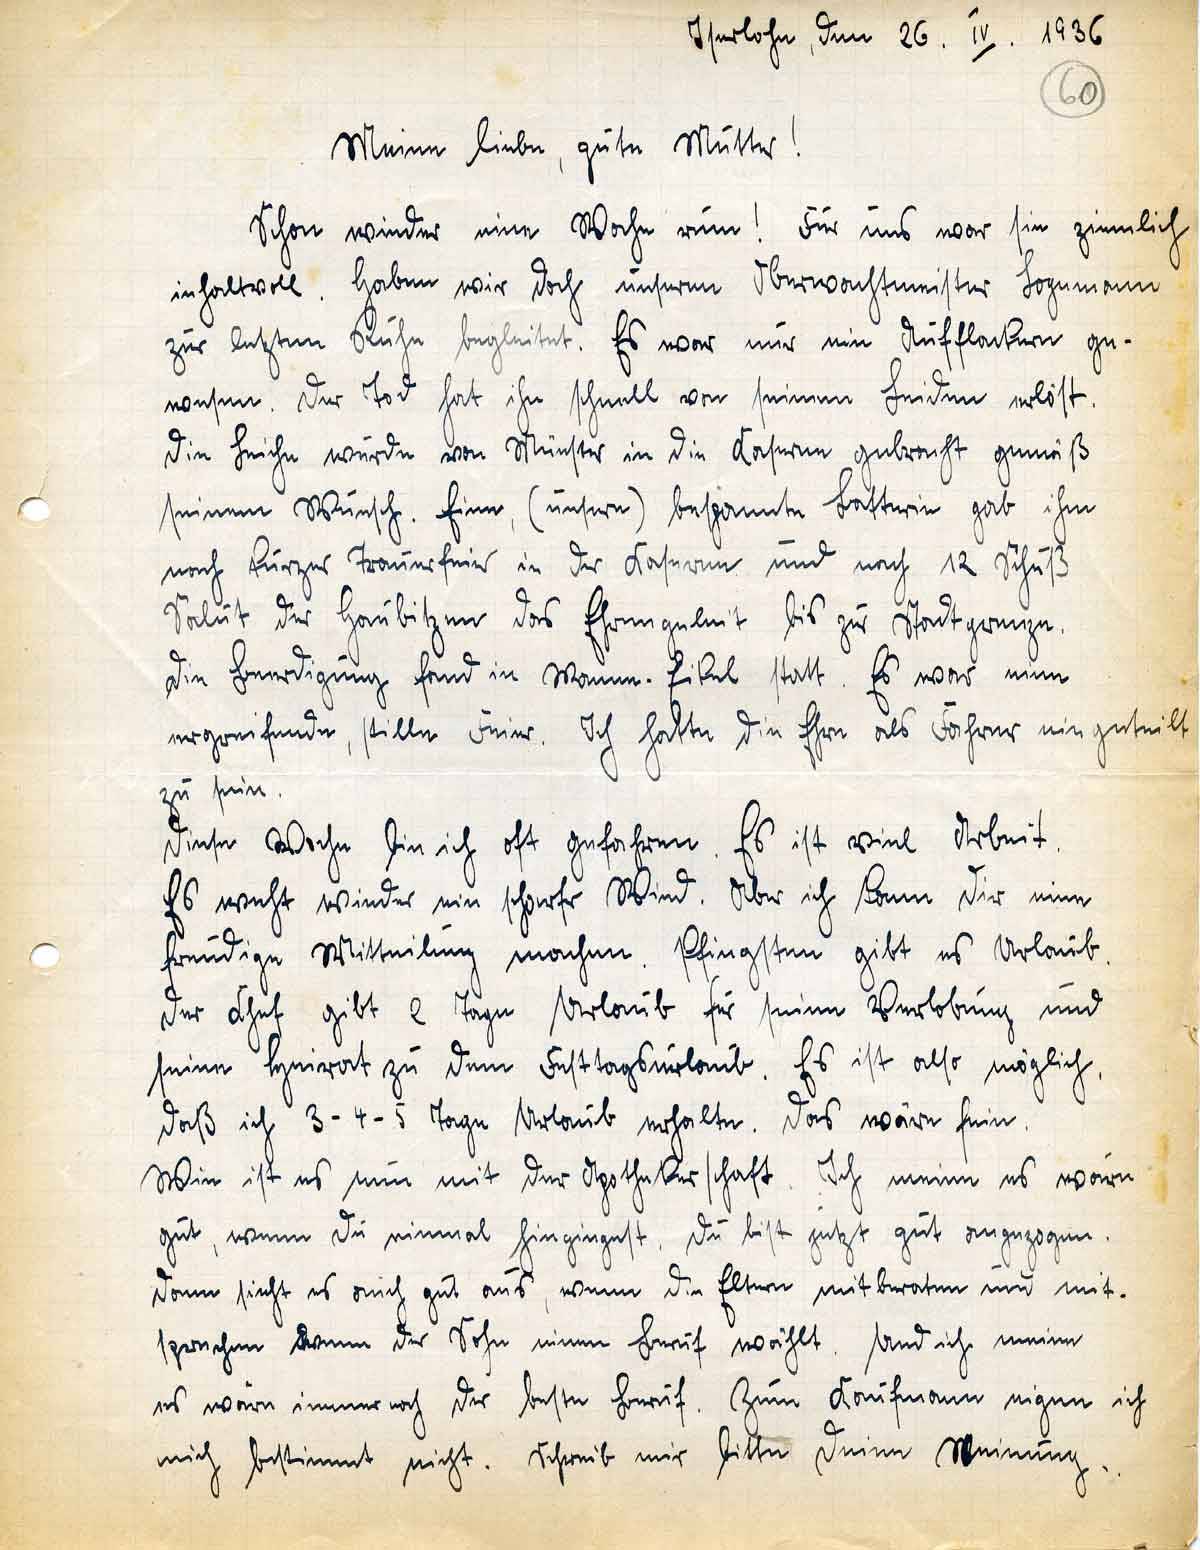 Iserlohn, den 26. IV. 1936
60
Meine liebe, gute Mutter!
Schon wieder eine Woche rum! Für uns war sie ziemlich
inhaltvoll. Haben wir doch unseren Oberwachtmeister Logemann
zur letzten Ruhe begleitet. Es war nur ein Aufflackern ge-
wesen. Der Tod hat ihn schnell von seinen Leiden erlöst.
Die Leiche wurde von Münster in die Kaserne gebracht gemäß
seinem Wunsch. Eine, (unsere) bespannte Batterie gab ihm
nach kurzer Trauerfeier in der Kaserne und nach 12 Schuß
Salut der Haubitzen das Ehrengeleit bis zur Stadtgrenze.
Die Beerdigung fand in Wanne-Eikel statt. Es war eine
ergreifende, stille Feier. Ich hatte die Ehre als Fahrer eingeteilt
zu sein.
Diese Woche bin ich oft gefahren. Es ist viel Arbeit.
Es weht wieder ein scharfr Wind. Aber ich kann Dir eine
freudige Mitteilung machen. Pfingsten gibt es Urlaub.
Der Chef gibt 2 Tage Urlaub für seine Verlobung und
seine Heirat zu dem Festtagsurlaub. Es ist also möglich,
daß ich 3-4-5 Tage Urlaub erhalte. Das wäre fein.
Wie ist es nun mit der Apothekerschaft. Ich meine es wäre
gut, wenn Du einmal hingingest. Du bist jetzt gut angezogen.
Dann sieht es auch gut aus, wenn die Eltern mitberaten und mit-
sprechen wenn der Sohn einen Beruf wählt. Und ich meine
es wäre immernoch der beste Beruf. Zum Kaufmann eigne ich
mich bestimmt nicht. Schreib mir bitte Deine Meinung.